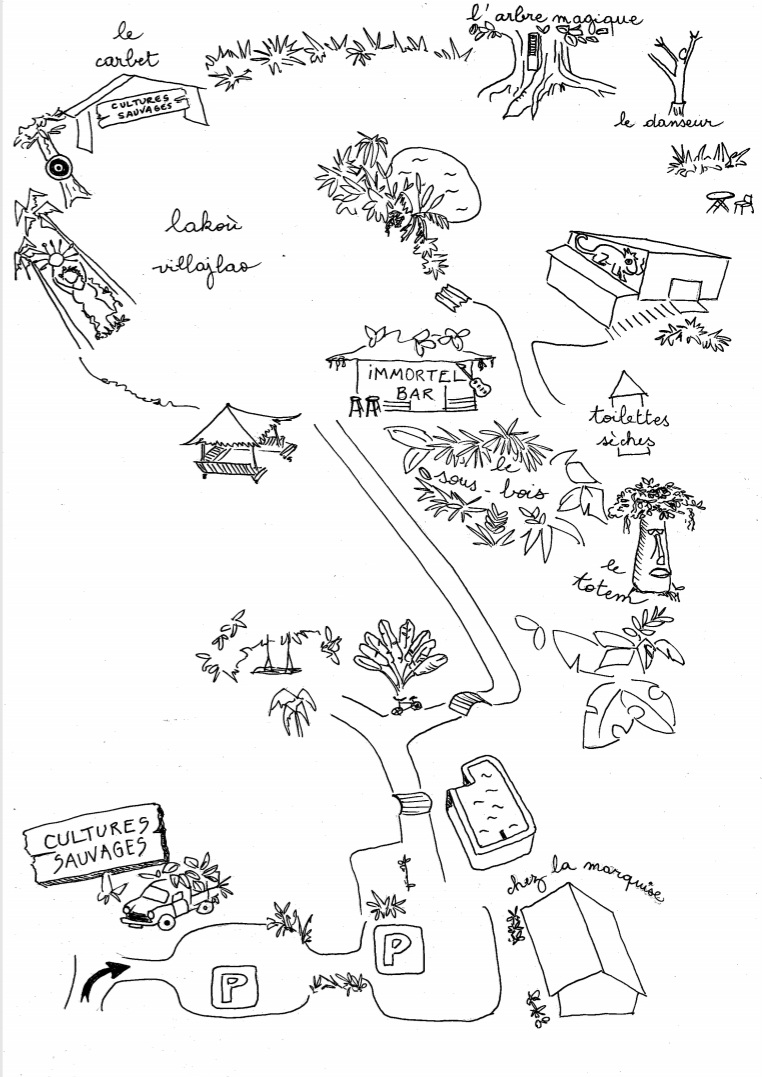 l'arbre magique
le
carbet
CULTURES
SAUVAGES
le danseur
lakoù
villajlao
iMMORTEL
BAR
toilettes
sèches
le
sous-bois
le
totem
CULTURES
SAUVAGES
chez la marquise
P
P